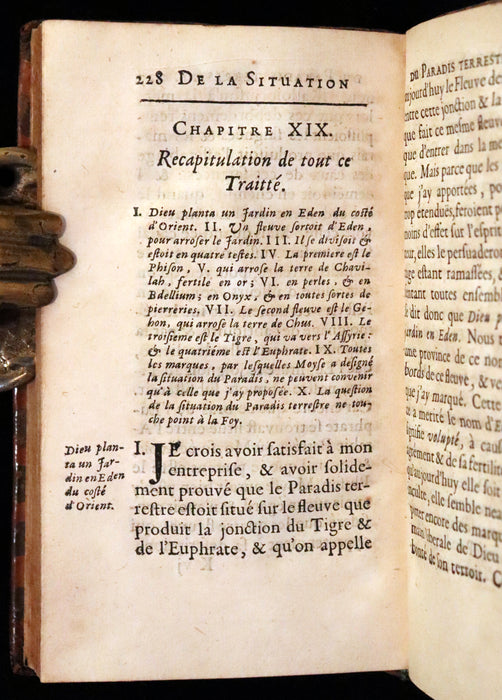 228 DE LA SITUATION
CHAPITRE XIX.
Recapitulation de tout ce
Traitté.
I. Dieu planta un Jardin en Eden du costé
d'Orient. II. Un fleuve sortoit d'Eden,
pour arroser le Jardin. III. Il se divisoit &
estoit en quatre testes. IV La premiere est le
Phison, V. qui arrose la terre de Chavi-
lah, fertile en or; VI. en perles, & en
Bdellium; en Onyx, & en toutes sortes de
pierreries, VII. Le second fleuve est le Ge-
hon, qui arrose la terre de Chus. VIII. Le
troisieme est le Tigre, qui va vers l'Assyrie:
& le quatriéme est l'Euphrate. IX. Toutes
les marques, par lesquelles Moyse a designé
la situation du Paradis, ne peuvent convenir
qu'à celle que j'ay proposée. X. La question
de la situation du Paradis terrestre ne tou-
che point à la Foy.
Dieu plan-
ta un Jar-
din en Eden
du costé
d'Orient.
I. JE crois avoir satisfait à mon
entreprise, & avoir solide-
ment prouvé que le Paradis ter-
restre estoit situé sur le fleuve que
produit la jonction du Tigre &
de l'Euphrate, & qu'on appelle
DU PARADIS TERREST
aujourd'huy le Fleuve de
entre cette jonction & la
que fait ce mesme fleuve
d'entrer dans la me
que. Mais parce que les
que j'ay apportées, p
trop étenduës, feroient
moins d'effet sur l'esprit
eur, elles le persuaderon
age estant ramassées, &
entant toutes ensemble
dit donc que Dieu p
Jardin en Eden. Nous
une province de ce nom
bords de ce fleuve, & v
que j'ay marqué. Cette
a merité le nom d'E
signifie volupté, à cau
agement & de sa fertilit
qu'aujourd'huy elle soit
inculte, elle semble nea
encore des marq
liberale de Dieu
bonté de son terroir. C